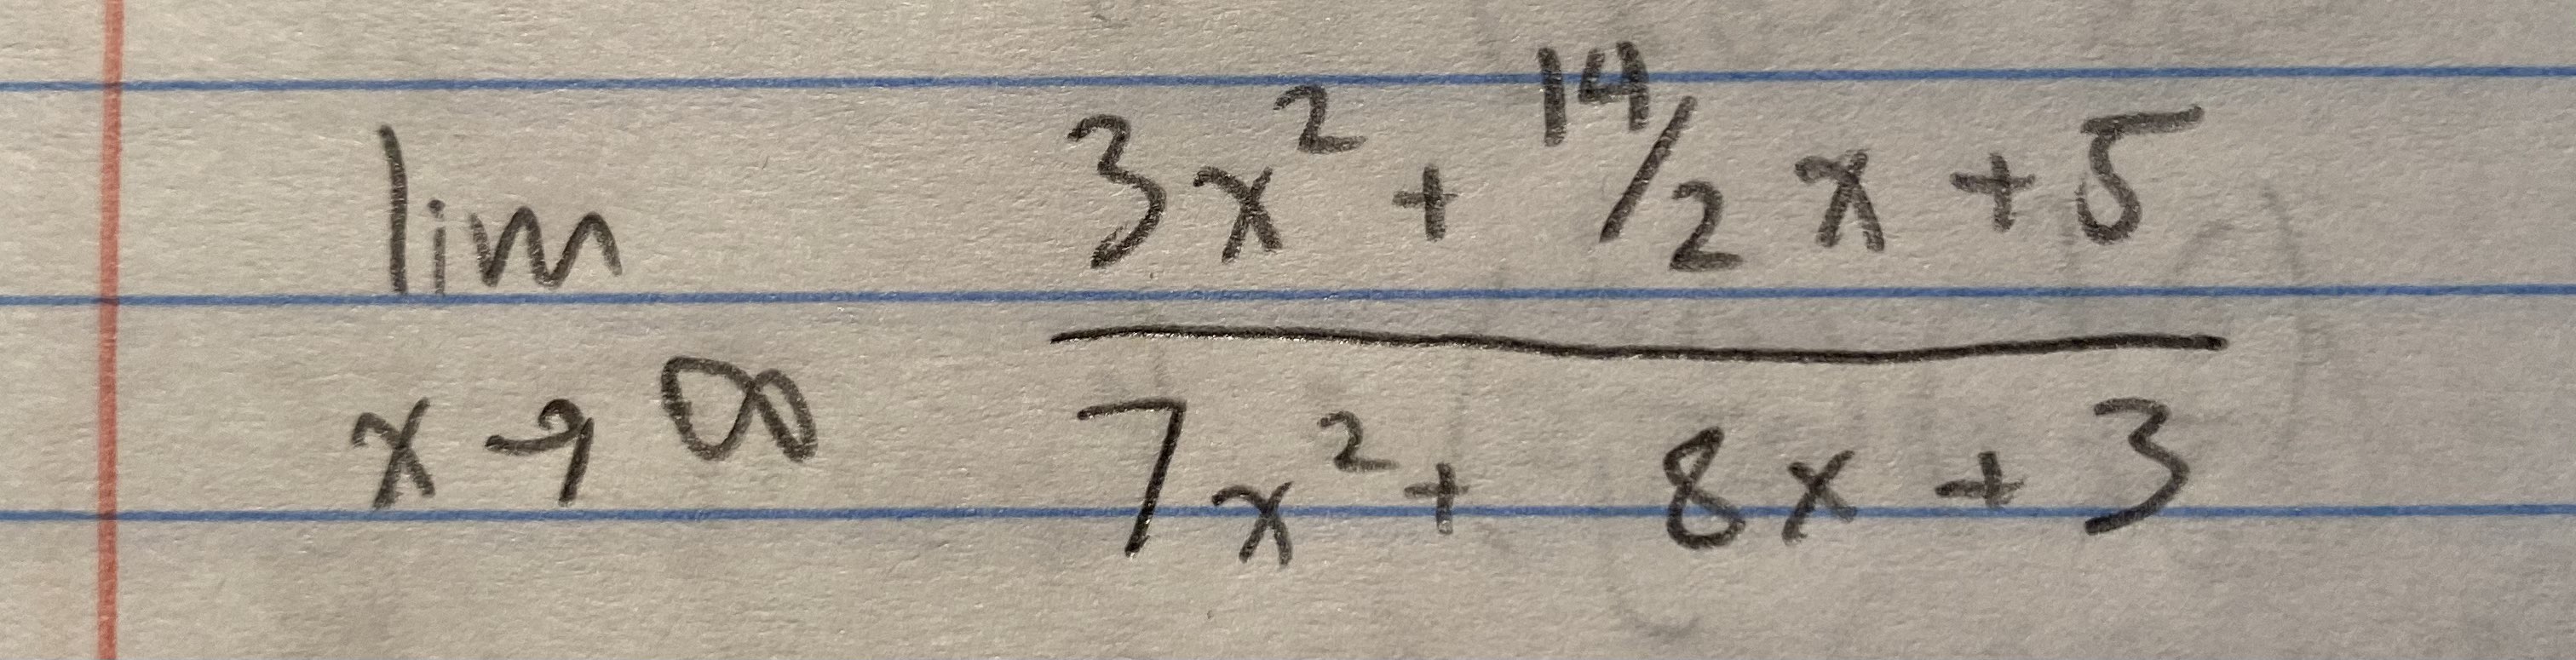 lim 3x² + 14/2 x + 5
x → ∞ 7x² + 8x + 3